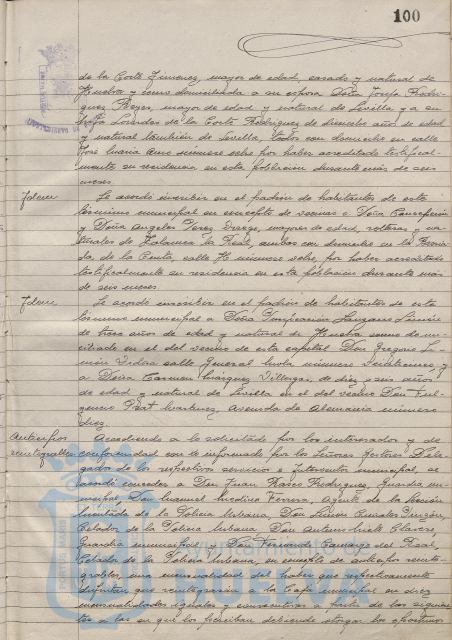 100
de la Corte Jimenez, mayor de edad, casado y natural de
Huelva y como domiciliada a su esposa Doña Josefa Rodri-
guez Reyes, mayor de edad y natural de Sevilla y a su
hija Lourdes de la Corte Rodriguez de dieciseis años de edad
y natural tambien de Sevilla, todos con domicilio en calle
José Maria Amo número ocho por haber acreditado testifical-
mente su residencia en esta poblacion durante más de seis
meses.
Idem Se acordó inscribir en el padrón de habitantes de este
término municipal en concepto de vecinas a Doña Concepcion
y Doña Angeles Perez mayores de edad, solteras y na-
turales de la Real, ambas con domicilio en la
da, de la Cinta, calle H número ocho, por haber acreditado
testificalmente su residencia en esta poblacion durante más
de seis meses
Idem Se acordó inscribir en el padrón de habitantes de este
término municipal a Doña Purificacion Limón
de trece años de edad y natural de Huelva como do-
miciliada en el del vecino de esta capital Don Gregorio Li-
món calle General número veintinueve, y
a Doña Carmen Marquez Villegas, de diez y seis años
de edad y natural de Sevilla en el del vecino Don Ful-
gencio Prat Martinez, Avenida de Alemania número
diez.
Anticipos Accediendo a lo solicitado por los interesados y de
reintegrables conformidad con lo informado por los Señores Gestores Dele-
gados de los respectivos servicios e Interventor municipal, se
acordó conceder a Don Juan Ramos Rodriguez, Guardia mu-
nicipal, Don Manuel Medina Ferrera, Agente de la Sección
Montada de la Policia Urbana, Don Gonzalez
Celador de la Policia Urbana Don Antonio
Guardia municipal y Don Fernando del Real,
Celador de la Policia Urbana, en concepto de anticipo reinte-
grables, una mensualidad del haber que respectivamente
disfrutan que reintegrarán a la Caja municipal en diez
mensualidades iguales y consecutivas a partir de las siguien-
tes a las en que lo perciban debiendo otorgar los oportunos
Ayuntamiento de